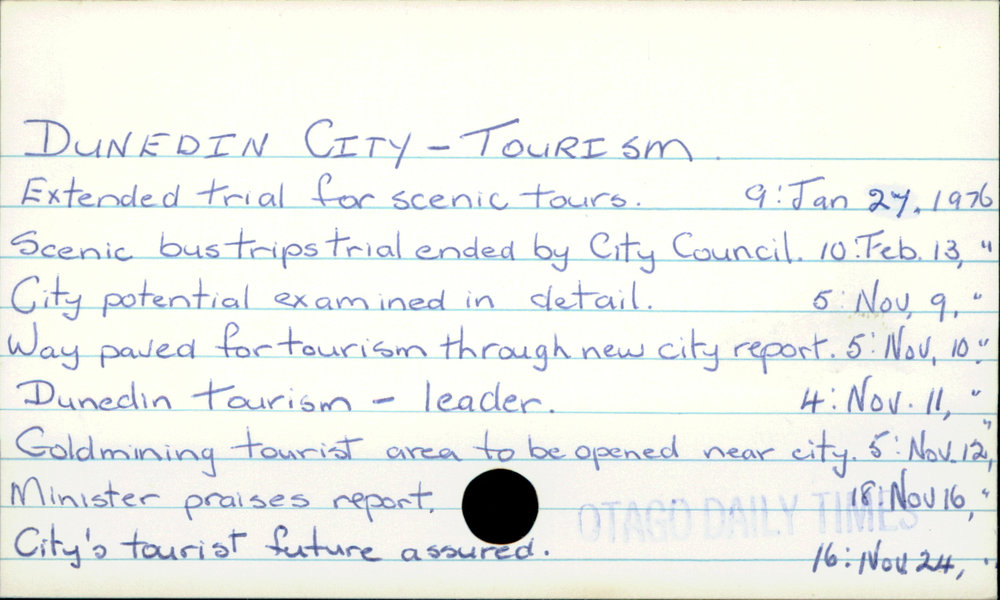 DUNEDIN CITY - TOURISM.
Extended trial for scenic tours. 9: Jan 27, 1976
Scenic bus trips trial ended by City Council. 10: Feb. 13, "
City potential examined in detail. 5: Nov, 9, "
Way paved for tourism through new city report. 5: Nov, 10, "
Dunedin tourism - leader. 4: Nov. 11, "
Goldmining tourist area to be opened near city. 5: Nov. 12, "
Minister praises report. 18: Nov 16, "
OTAGO DAILY TIMES
City's tourist future assured. 16: Nov 24, "